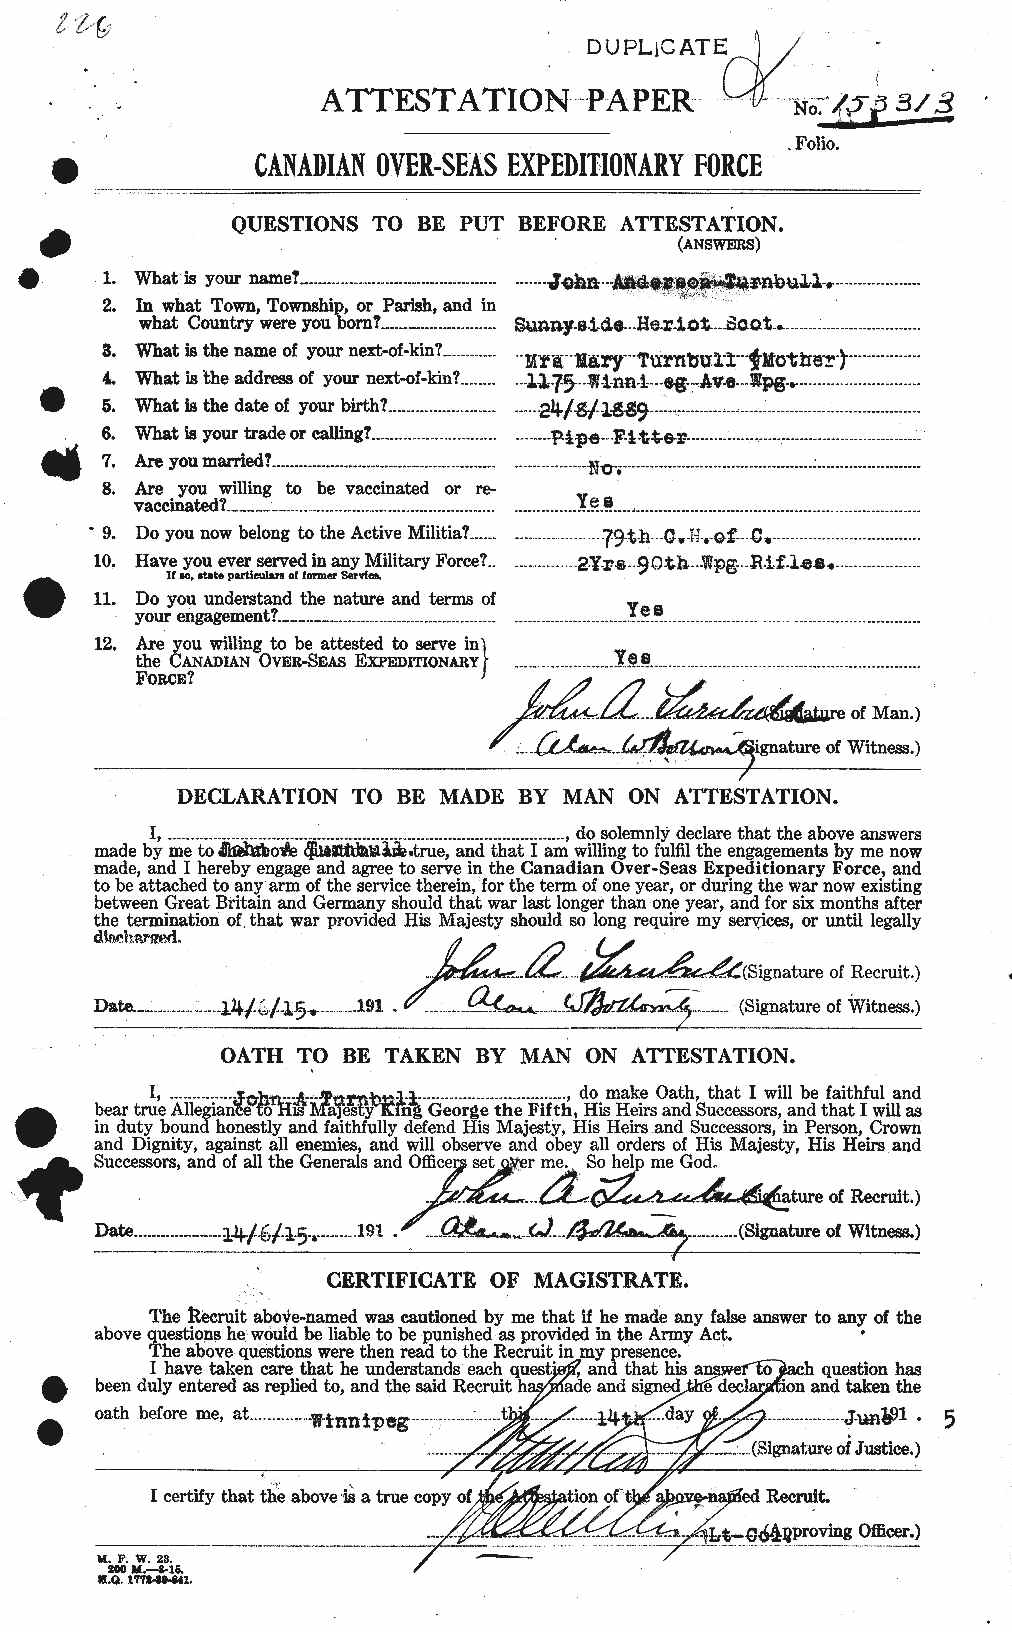 226
DUPLICATE
ATTESTATION PAPER
No. 153313
Folio.
CANADIAN OVER-SEAS EXPEDITIONARY FORCE
QUESTIONS TO BE PUT BEFORE ATTESTATION.
(ANSWERS)
1. What is your name? John Anderson Turnbull.
2. In what Town, Township, or Parish, and in
what Country were you born? Sunnyside Heriot Scot.
3. What is the name of your next-of-kin? Mrs Mary Turnbull (Mother)
4. What is the address of your next-of-kin? 1175 Winni eg Ave Wpg.
5. What is the date of your birth? 24/8/1889
6. What is your trade or calling? Pipe Fitter
7. Are you married? No.
8. Are you willing to be vaccinated or re-
vaccinated? Yes
9. Do you now belong to the Active Militia? 79th C.H.of C.
10. Have you ever served in any Military Force? 2Yrs 90th Wpg Rifles.
If so, state particulars of former Service.
11. Do you understand the nature and terms of
your engagement? Yes
12. Are you willing to be attested to serve in
the CANADIAN OVER-SEAS EXPEDITIONARY
FORCE? Yes
John A Turnbull (Signature of Man.)
Alan W Bottomley (Signature of Witness.)
DECLARATION TO BE MADE BY MAN ON ATTESTATION.
I, , do solemnly declare that the above answers
made by me to the above questions are true, and that I am willing to fulfil the engagements by me now
made, and I hereby engage and agree to serve in the Canadian Over-Seas Expeditionary Force, and
to be attached to any arm of the service therein, for the term of one year, or during the war now existing
between Great Britain and Germany should that war last longer than one year, and for six months after
the termination of that war provided His Majesty should so long require my services, or until legally
discharged.
John A Turnbull (Signature of Recruit.)
Date 14/6/15. 191 . Alan W Bottomley (Signature of Witness.)
OATH TO BE TAKEN BY MAN ON ATTESTATION.
I, John A Turnbull , do make Oath, that I will be faithful and
bear true Allegiance to His Majesty King George the Fifth, His Heirs and Successors, and that I will as
in duty bound honestly and faithfully defend His Majesty, His Heirs and Successors, in Person, Crown
and Dignity, against all enemies, and will observe and obey all orders of His Majesty, His Heirs and
Successors, and of all the Generals and Officers set over me. So help me God.
John A Turnbull (Signature of Recruit.)
Date 14/6/15. 191 . Alan W Bottomley (Signature of Witness.)
CERTIFICATE OF MAGISTRATE.
The Recruit above-named was cautioned by me that if he made any false answer to any of the
above questions he would be liable to be punished as provided in the Army Act.
The above questions were then read to the Recruit in my presence.
I have taken care that he understands each question, and that his answer to each question has
been duly entered as replied to, and the said Recruit has made and signed the declaration and taken the
oath before me, at Winnipeg this 14th day of June 191 . 5
(Signature of Justice.)
I certify that the above is a true copy of the Attestation of the above-named Recruit.
Lt-Col. (Approving Officer.)
M. F. W. 23.
200 M.—2-15.
H.Q. 1772-39-841.